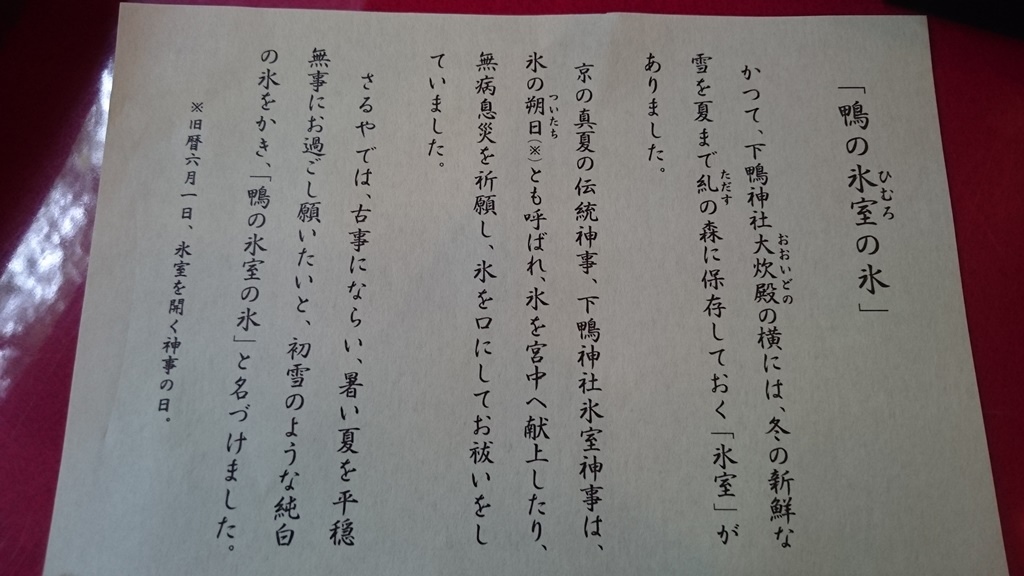 「鴨の氷室の氷」
ひむろ
かつて、下鴨神社大炊殿の横には、冬の新鮮な
おおいどの
雪を夏まで糺の森に保存しておく「氷室」が
ただす
ありました。
京の真夏の伝統神事、下鴨神社氷室神事は、
氷の朔日(※)とも呼ばれ、氷を宮中へ献上したり、
ついたち
無病息災を祈願し、氷を口にしてお祓いをし
ていました。
さるやでは、古事にならい、暑い夏を平穏
無事にお過ごし願いたいと、初雪のような純白
の氷をかき、「鴨の氷室の氷」と名づけました。
※旧暦六月一日、氷室を開く神事の日。